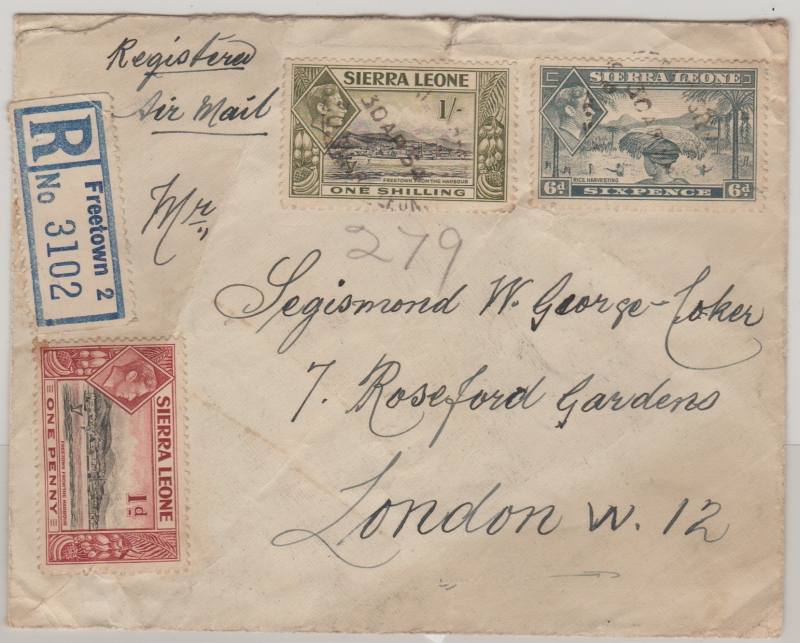 Registered
Air Mail
R
No 3102
Freetown 2
SIERRA LEONE
1/-
30 AP
FREETOWN FROM THE HARBOUR
ONE SHILLING
SIERRA LEONE
RICE HARVESTING
6d SIXPENCE 6d
Mr.
279
Segismond W. George-Coker
7. Roseford Gardens
London W. 12
SIERRA LEONE
1d
FREETOWN FROM THE HARBOUR
ONE PENNY